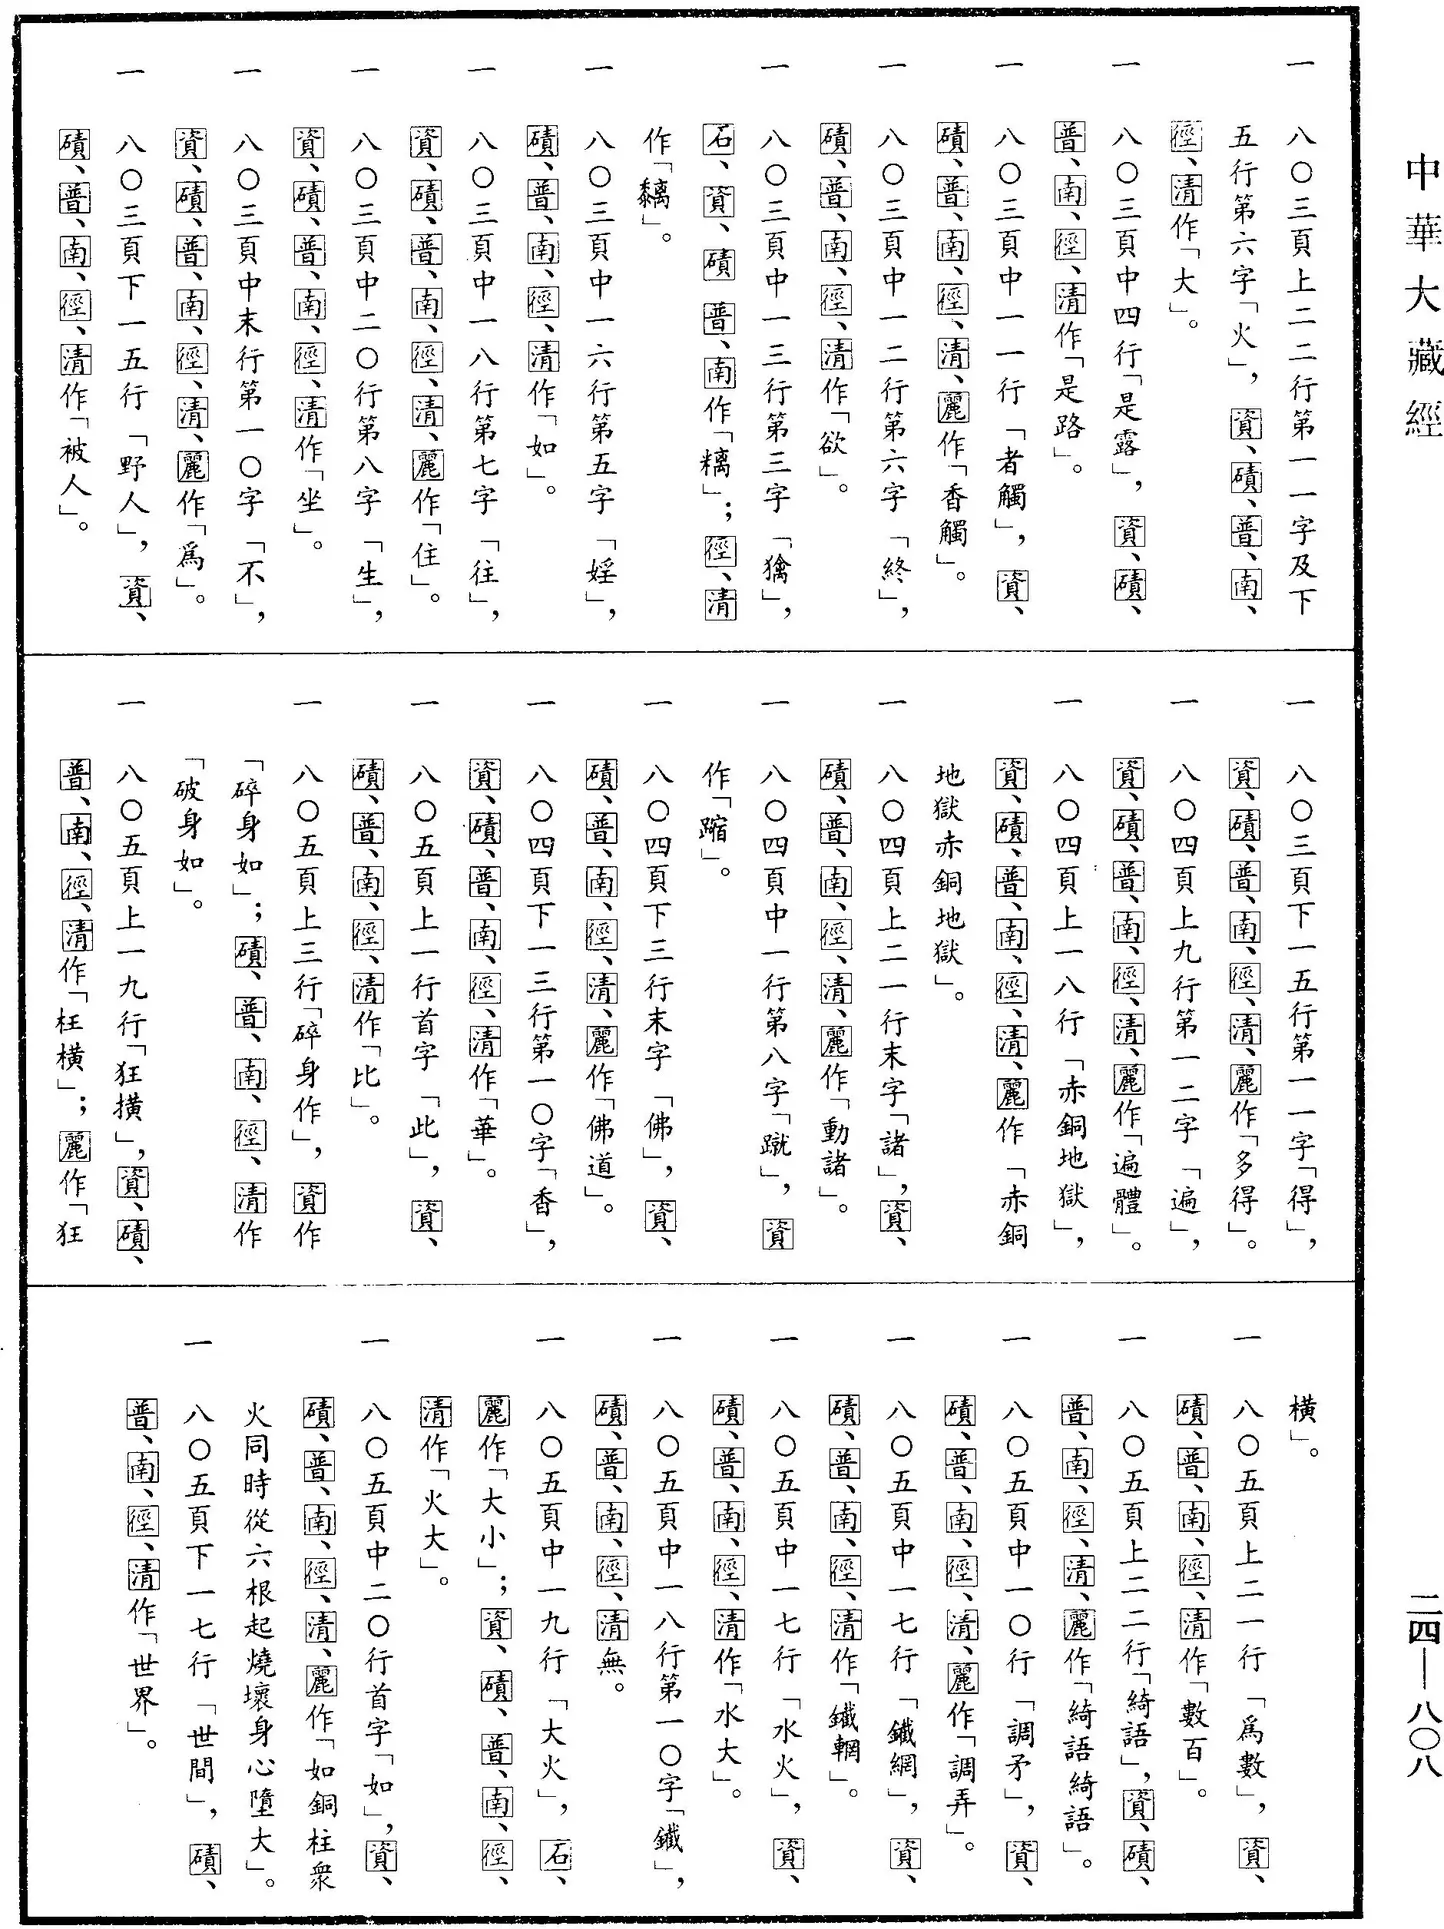 中華大藏經
二四—八〇八
一 八〇三頁上二二行第一一字及下
五行第六字「火」，資、磧、普、南、
徑、清作「大」。
一 八〇三頁中四行「是露」，資、磧、
普、南、徑、清作「是路」。
一 八〇三頁中一一行「者觸」，資、
磧、普、南、徑、清、麗作「香觸」。
一 八〇三頁中一二行第六字「終」，
磧、普、南、徑、清作「欲」。
一 八〇三頁中一三行第三字「㺠」，
石、資、磧、普、南作「糲」；徑、清
作「黐」。
一 八〇三頁中一六行第五字「婬」，
磧、普、南、徑、清作「如」。
一 八〇三頁中一八行第七字「往」，
資、磧、普、南、徑、清、麗作「住」。
一 八〇三頁中二〇行第八字「生」，
資、磧、普、南、徑、清作「坐」。
一 八〇三頁中末行第一〇字「不」，
資、磧、普、南、徑、清、麗作「爲」。
一 八〇三頁下一五行「野人」，資、
磧、普、南、徑、清作「被人」。
一 八〇三頁下一五行第一一字「得」，
資、磧、普、南、徑、清、麗作「多得」。
一 八〇四頁上九行第一二字「遍」，
資、磧、普、南、徑、清、麗作「遍體」。
一 八〇四頁上一八行「赤銅地獄」，
資、磧、普、南、徑、清、麗作「赤銅
地獄赤銅地獄」。
一 八〇四頁上二一行末字「諸」，資、
磧、普、南、徑、清、麗作「動諸」。
一 八〇四頁中一行第八字「蹴」，資
作「蹜」。
一 八〇四頁下三行末字「佛」，資、
磧、普、南、徑、清、麗作「佛道」。
一 八〇四頁下一三行第一〇字「香」，
資、磧、普、南、徑、清作「華」。
一 八〇五頁上一行首字「此」，資、
磧、普、南、徑、清作「比」。
一 八〇五頁上三行「碎身作」，資作
「碎身如」；磧、普、南、徑、清作
「破身如」。
一 八〇五頁上一九行「狂撗」，資、磧、
普、南、徑、清作「枉橫」；麗作「狂
橫」。
一 八〇五頁上二一行「爲數」，資、
磧、普、南、徑、清作「數百」。
一 八〇五頁上二二行「綺語」，資、磧、
普、南、徑、清、麗作「綺語綺語」。
一 八〇五頁中一〇行「調矛」，資、
磧、普、南、徑、清、麗作「調弄」。
一 八〇五頁中一七行「鐵網」，資、
磧、普、南、徑、清作「鐵輞」。
一 八〇五頁中一七行「水火」，資、
磧、普、南、徑、清作「水大」。
一 八〇五頁中一八行第一〇字「鐵」，
磧、普、南、徑、清無。
一 八〇五頁中一九行「大火」，石、
麗作「大小」；資、磧、普、南、徑、
清作「火大」。
一 八〇五頁中二〇行首字「如」，資、
磧、普、南、徑、清、麗作「如銅柱衆
火同時從六根起燒壞身心墮大」。
一 八〇五頁下一七行「世間」，磧、
普、南、徑、清作「世界」。